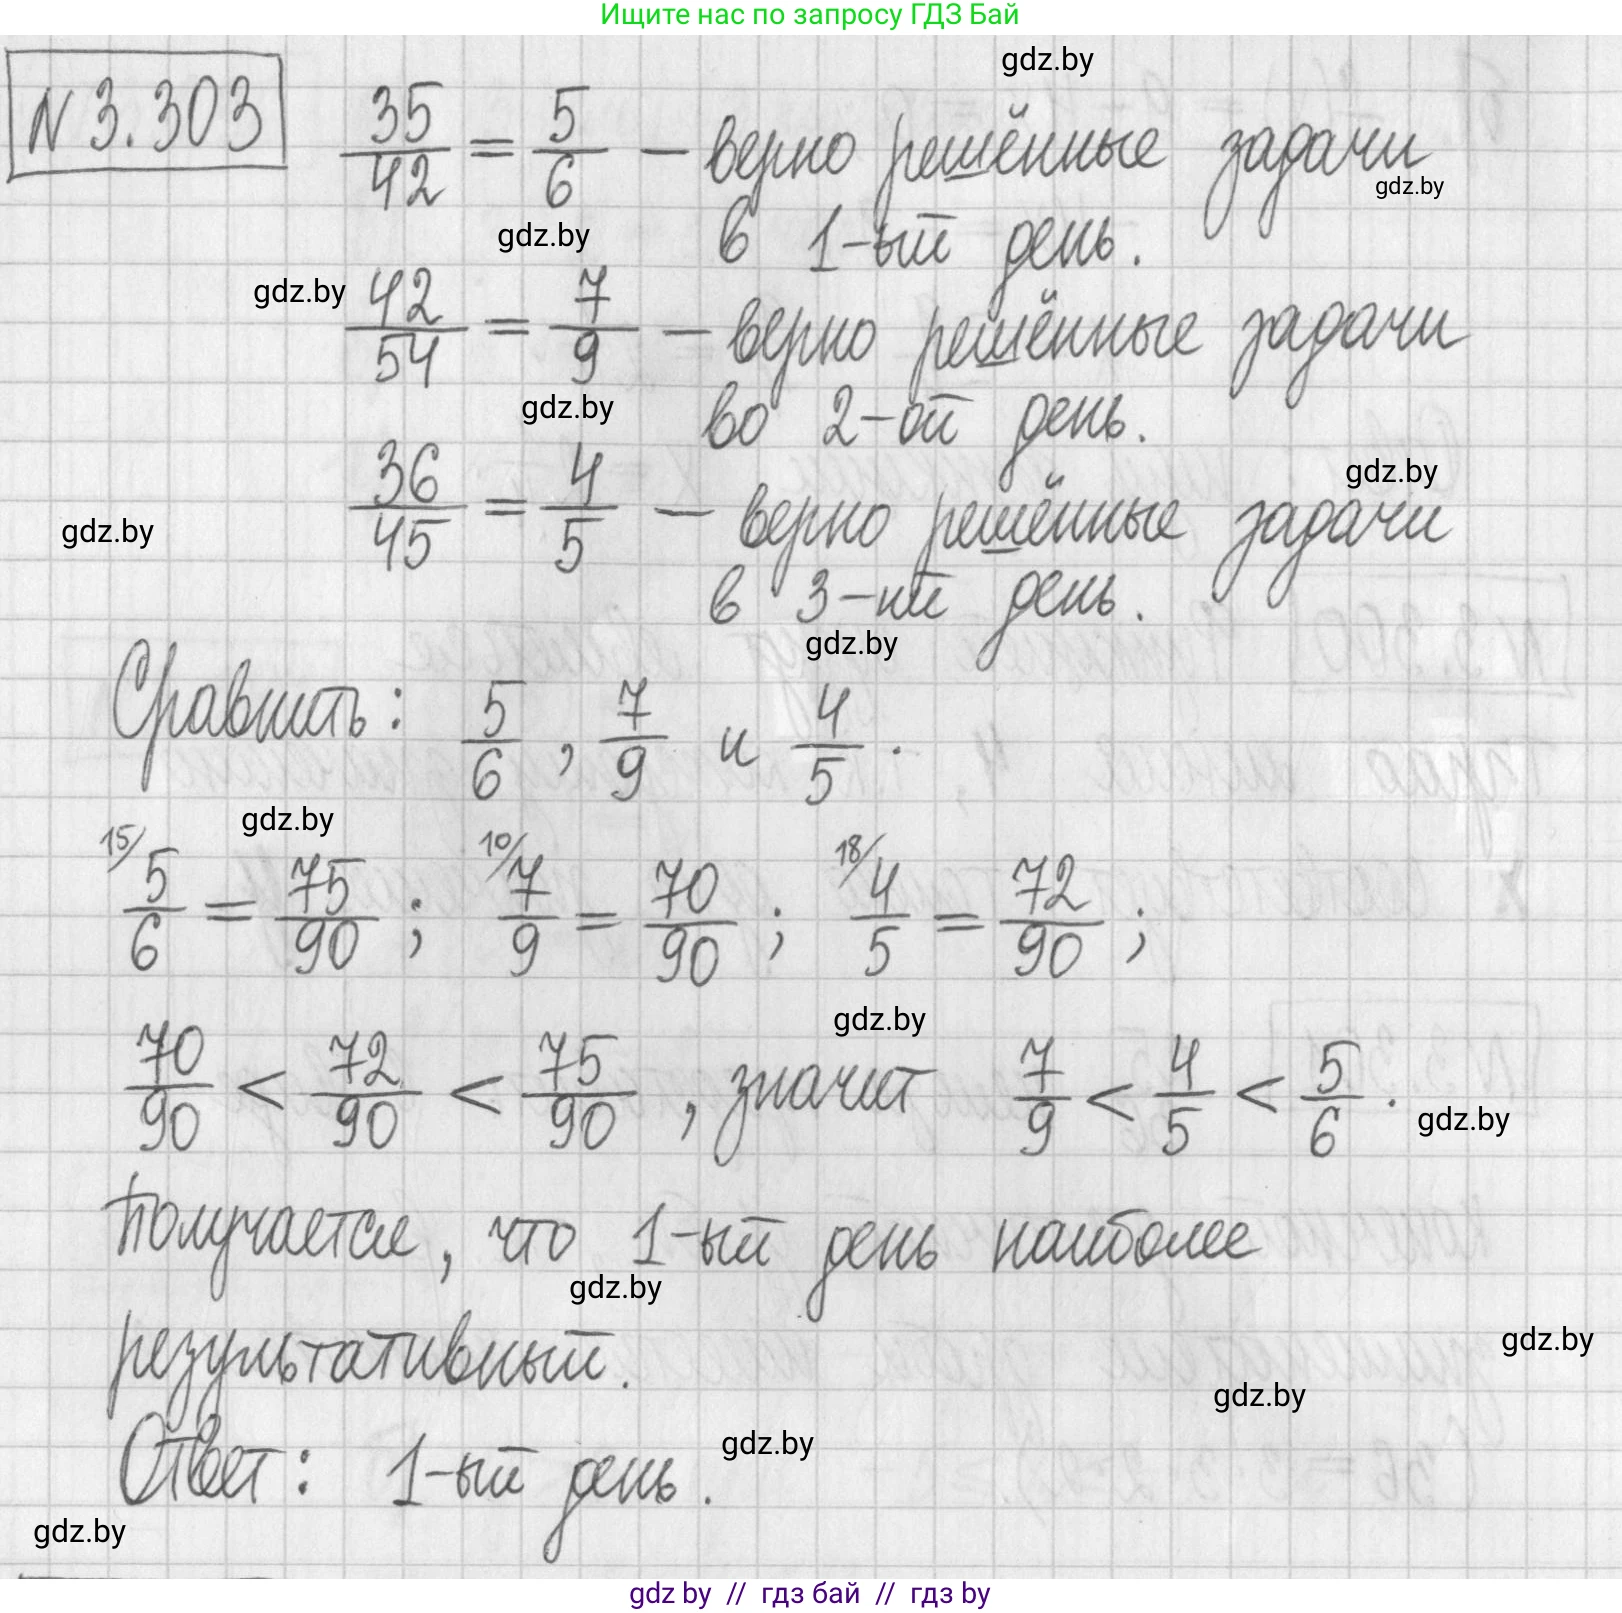 Ищите нас по запросу ГДЗ Бай
gdz.by
N 3.303 35/42 = 5/6 — верно решённые задачи
gdz.by
gdz.by в 1-ый день.
gdz.by 42/54 = 7/9 — верно решённые задачи
gdz.by во 2-ой день.
gdz.by
gdz.by 36/45 = 4/5 — верно решённые задачи
в 3-ий день.
gdz.by
Сравнить: 5/6, 7/9 и 4/5.
gdz.by
15/ 5/6 = 75/90; 10/ 7/9 = 70/90; 18/ 4/5 = 72/90;
gdz.by
70/90 < 72/90 < 75/90, значит 7/9 < 4/5 < 5/6.
gdz.by
Получается, что 1-ый день наиболее
gdz.by
gdz.by
результативный.
gdz.by
gdz.by
Ответ: 1-ый день.
gdz.by
gdz by // гдз бай // гдз by